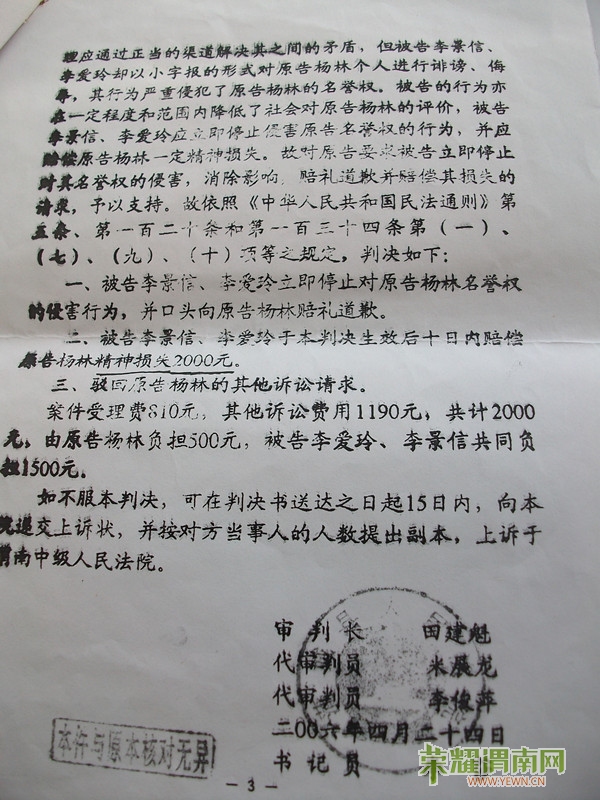 理应通过正当的渠道解决其之间的矛盾，但被告李景信、
李爱玲却以小字报的形式对原告杨林个人进行诽谤、侮
辱，其行为严重侵犯了原告杨林的名誉权。被告的行为亦
在一定程度和范围内降低了社会对原告杨林的评价，被告
李景信、李爱玲应立即停止侵害原告名誉权的行为，并应
赔偿原告杨林一定精神损失。故对原告要求被告立即停止
对其名誉权的侵害，消除影响，赔礼道歉并赔偿其损失的
请求，予以支持。故依照《中华人民共和国民法通则》第
五条、第一百二十条和第一百三十四条第（一）、
（七）、（九）、（十）项等之规定，判决如下：
一、被告李景信、李爱玲立即停止对原告杨林名誉权
的侵害行为，并口头向原告杨林赔礼道歉。
二、被告李景信、李爱玲于本判决生效后十日内赔偿
原告杨林精神损失2000元。
三、驳回原告杨林的其他诉讼请求。
案件受理费810元，其他诉讼费用1190元，共计2000
元，由原告杨林负担500元，被告李爱玲、李景信共同负
担1500元。
如不服本判决，可在判决书送达之日起15日内，向本
院递交上诉状，并按对方当事人的人数提出副本，上诉于
渭南中级人民法院。
审判长 田建魁
代审判员 米展龙
代审判员 李俊萍
二00六年四月二十四日
书记员
本件与原本核对无异
— 3 —
荣耀渭南网